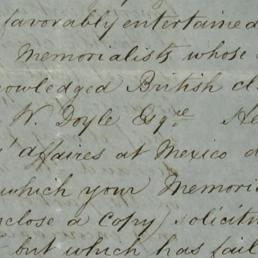 favorably entertained
Memorialists whose
nowledged British cl
W. Doyle Esqre He
d'affaires at Mexico d
which your Memori
nclose a copy) solicitu
but which has fail